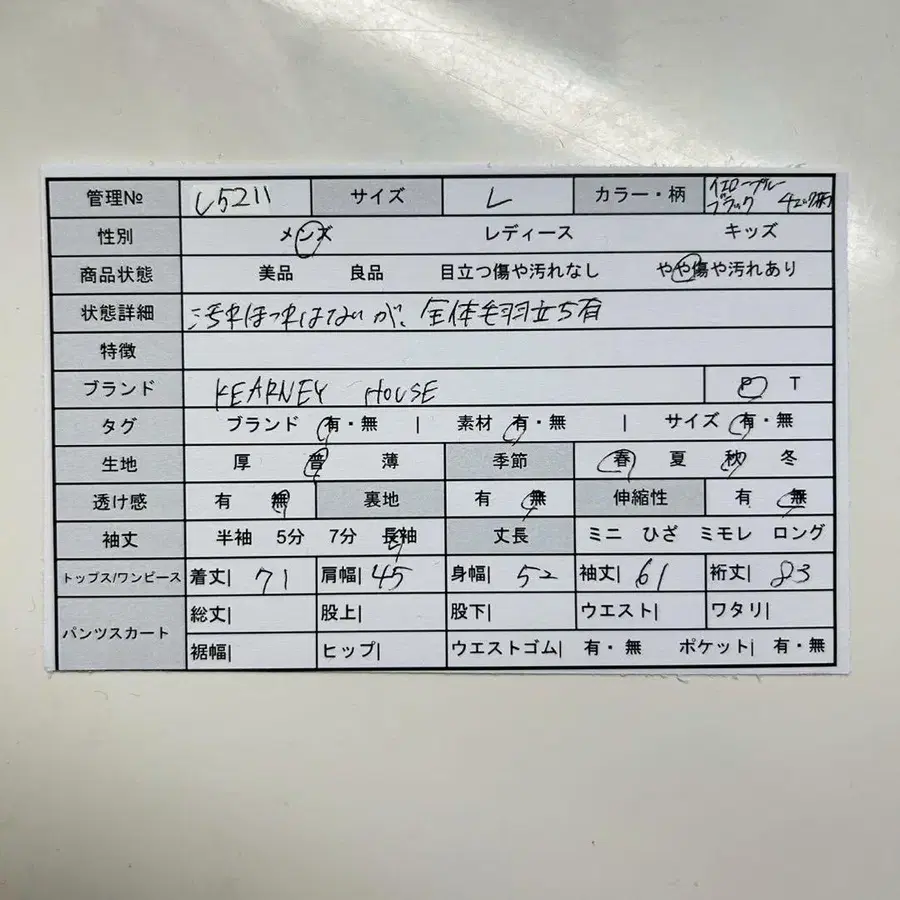 管理№ L5211 サイズ L カラー・柄 イエローブルー
ブラック チェック柄
性別 メンズ レディース キッズ
商品状態 美品 良品 目立つ傷や汚れなし やや傷や汚れあり
状態詳細 汚れほつれはないが、全体毛羽立ち有
特徴
ブランド KEARNEY HOUSE P T
タグ ブランド 有・無 | 素材 有・無 | サイズ 有・無
生地 厚 普 薄 季節 春 夏 秋 冬
透け感 有 無 裏地 有 無 伸縮性 有 無
袖丈 半袖 5分 7分 長袖 丈長 ミニ ひざ ミモレ ロング
トップス/ワンピース 着丈| 71 肩幅| 45 身幅| 52 袖丈| 61 裄丈| 83
パンツスカート 総丈| 股上| 股下| ウエスト| ワタリ|
裾幅| ヒップ| ウエストゴム| 有・無 ポケット| 有・無